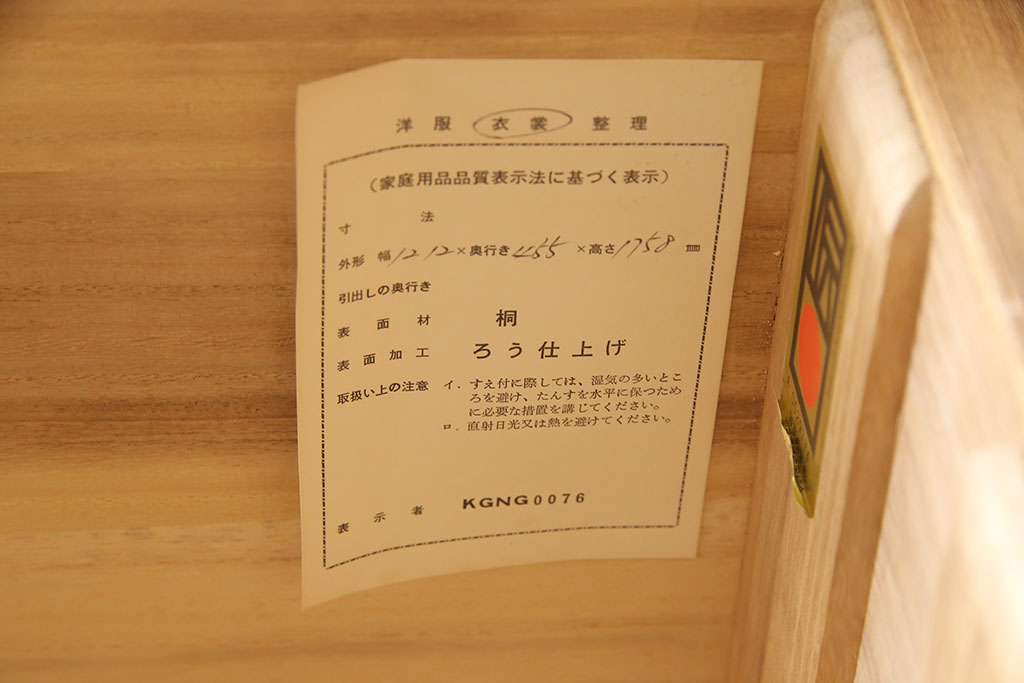 洋服 衣裳 整理
(家庭用品品質表示法に基づく表示)
寸法
外形 幅1212×奥行き455×高さ1758㎜
引出しの奥行き
表面材 桐
表面加工 ろう仕上げ
取扱い上の注意 イ. すえ付に際しては、湿気の多いとこ
ろを避け、たんすを水平に保つため
に必要な措置を講じてください。
ロ. 直射日光又は熱を避けてください。
表示者 KGNG0076